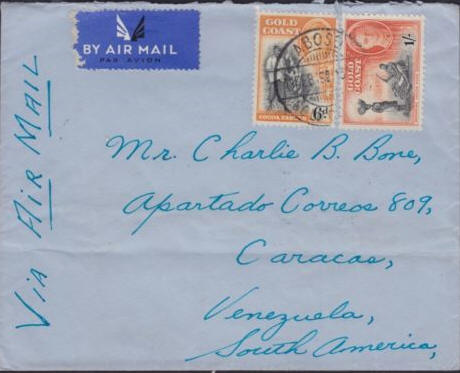 BY AIR MAIL
PAR AVION
GOLD
COAST
6d
GOLD
COAST
1/-
Via Air Mail
Mr. Charlie B. Bone,
Apartado Correos 809,
Caracas,
Venezuela,
South America,